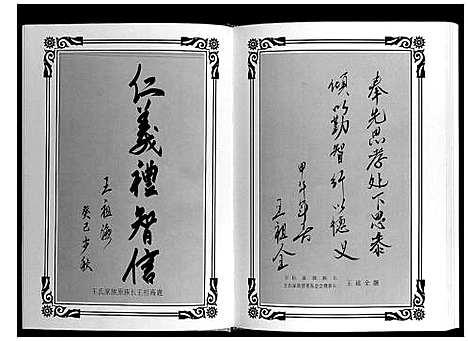 奉先思孝处下思恭
倾以勤智行以德义
王祖全
王祖全题
仁義禮智信
王祖海
癸巳步秋
王氏家族原族长王祖海題